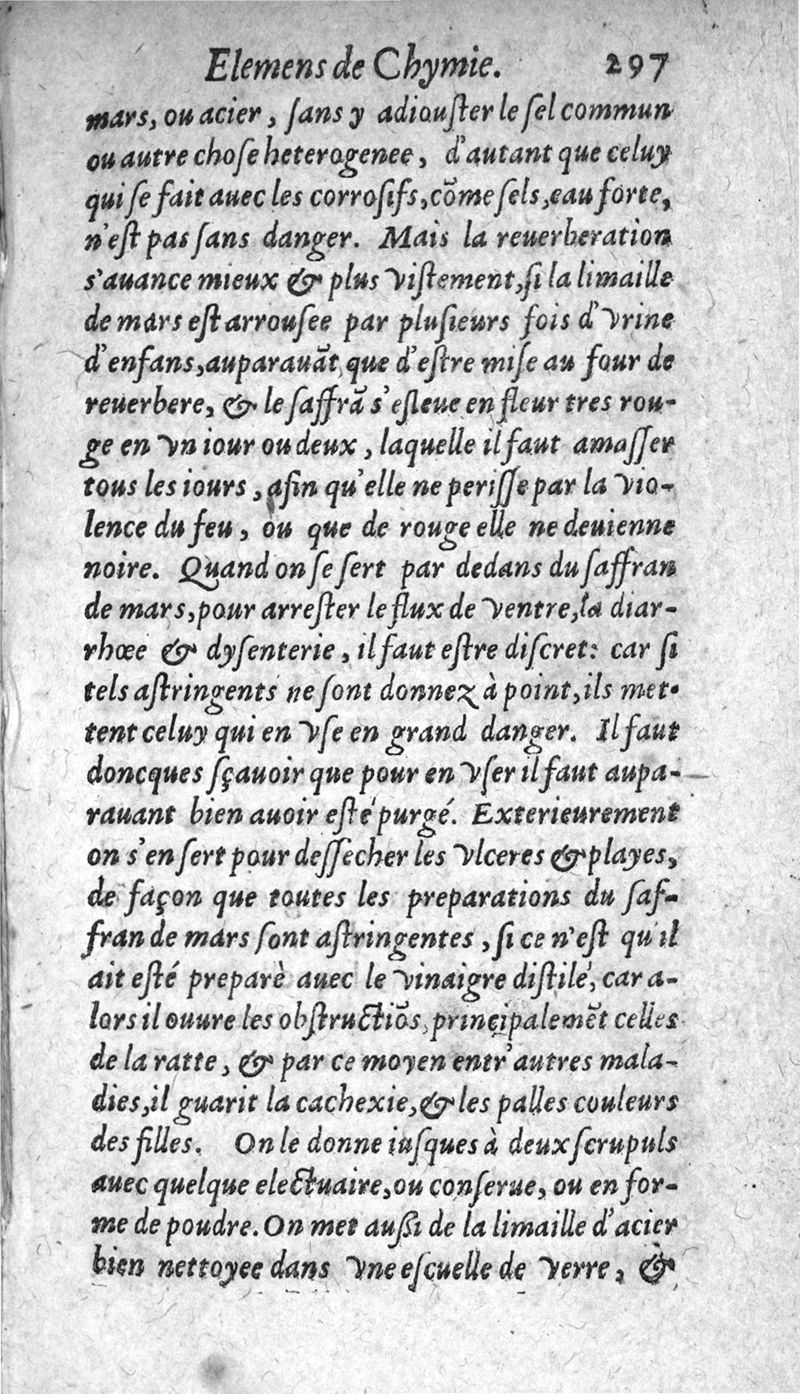 Elemens de Chymie. 297
mars, ou acier, ſans y adiouſter le ſel commun
ou autre choſe heterogenee, d'autant que celuy
qui ſe fait auec les corroſifs, cõme ſels, eau forte,
n'eſt pas ſans danger. Mais la reuerberation
s'auance mieux & plus viſtement, ſi la limaille
de mars eſt arrouſee par pluſieurs fois d'vrine
d'enfans, auparauãt que d'eſtre miſe au four de
reuerbere, & le ſaffrã s'eſleue en fleur tres rou-
ge en vn iour ou deux, laquelle il faut amaſſer
tous les iours, afin qu'elle ne periſſe par la vio-
lence du feu, ou que de rouge elle ne deuienne
noire. Quand on ſe ſert par dedans du ſaffran
de mars, pour arreſter le flux de ventre, la diar-
rhœe & dyſenterie, il faut eſtre diſcret: car ſi
tels aſtringents ne ſont donnez à point, ils met-
tent celuy qui en vſe en grand danger. Il faut
doncques ſçauoir que pour en vſer il faut aupa-
rauant bien auoir eſté purgé. Exterieurement
on s'en ſert pour deſſecher les vlceres & playes,
de façon que toutes les preparations du ſaf-
fran de mars ſont aſtringentes, ſi ce n'eſt qu'il
ait eſté preparè auec le vinaigre diſtilé, car a-
lors il ouure les obſtructiõs, principalemẽt celles
de la ratte, & par ce moyen entr'autres mala-
dies, il guarit la cachexie, & les palles couleurs
des filles. On le donne iuſques à deux ſcrupuls
auec quelque electuaire, ou conſerue, ou en for-
me de poudre. On met auſſi de la limaille d'acier
bien nettoyee dans vne eſcuelle de verre, &